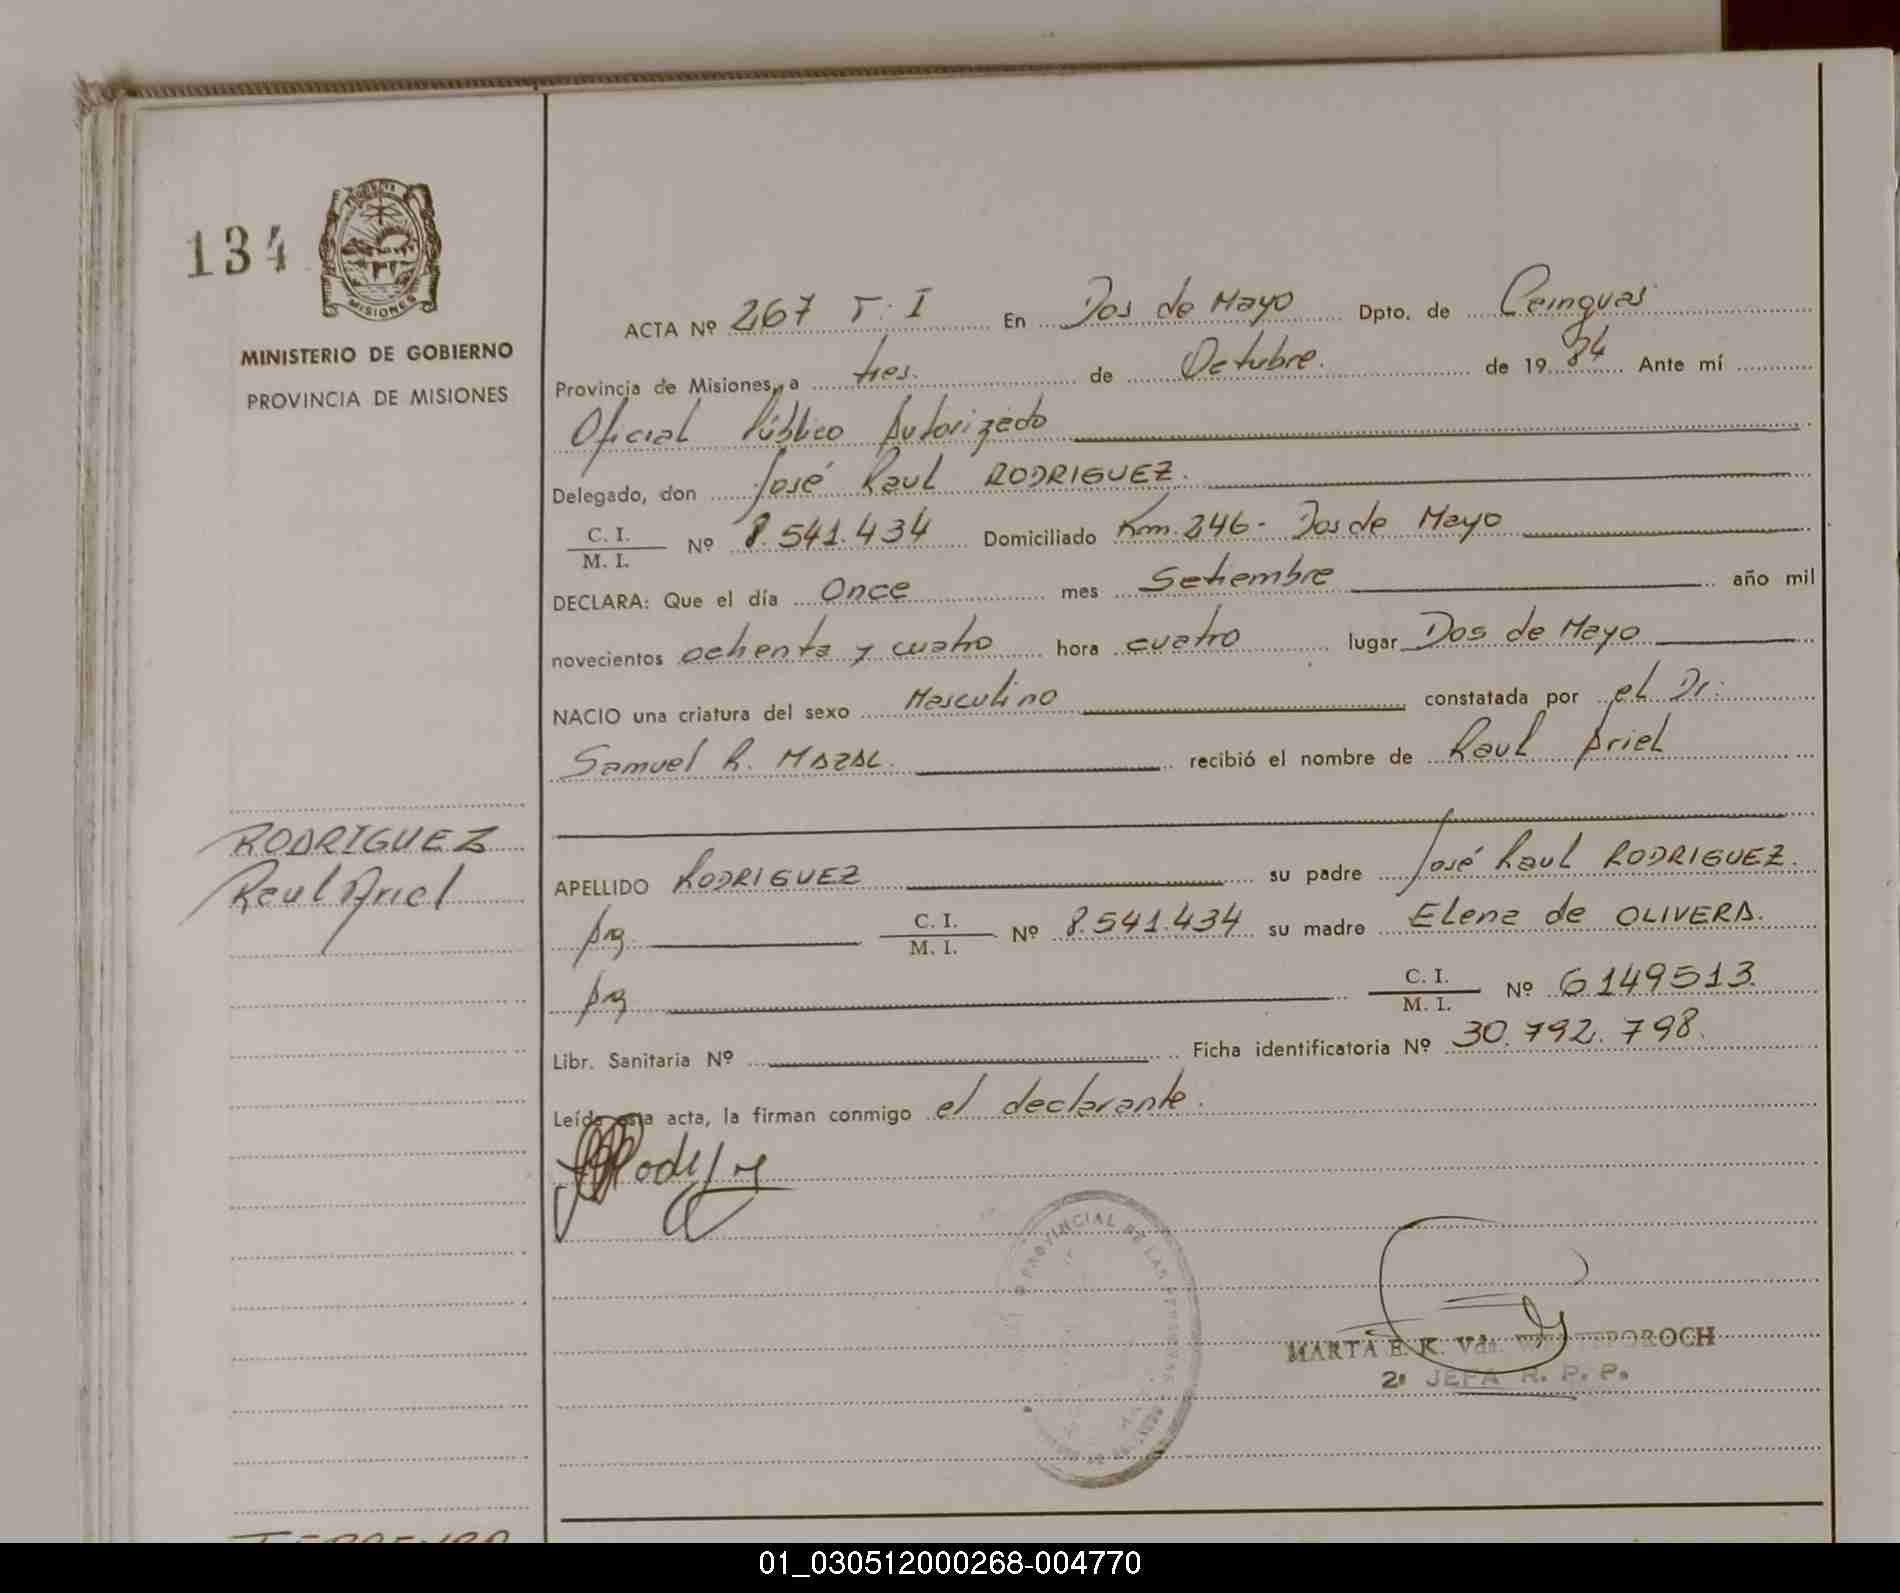 134
MISIONES
MINISTERIO DE GOBIERNO
PROVINCIA DE MISIONES
ACTA Nº 267 T. I En Dos de Mayo Dpto. de Cainguas
Provincia de Misiones, a tres. de Octubre. de 1984 Ante mí
Oficial Público Autorizado
Delegado, don José Raul RODRIGUEZ.
C. I.
M. I. Nº 8.541.434 Domiciliado Km. 246- Dos de Mayo
DECLARA: Que el día Once mes Setiembre año mil
novecientos ochenta y cuatro hora cuatro lugar Dos de Mayo
NACIO una criatura del sexo Masculino constatada por el Dr.
Samuel R. MAZAL. recibió el nombre de Raul Ariel
RODRIGUEZ
Raul Ariel
APELLIDO RODRIGUEZ su padre José Raul RODRIGUEZ.
Arg. C. I. M. I. Nº 8.541.434 su madre Elena de OLIVERA.
Arg C. I. M. I. Nº 6149513.
Libr. Sanitaria Nº Ficha identificatoria Nº 30.792.798.
Leída esta acta, la firman conmigo el declarante.
PROVINCIAL DE LAS
MARTA E. K. Vda.
2ª JEFA R. P. P.
01_030512000268-004770